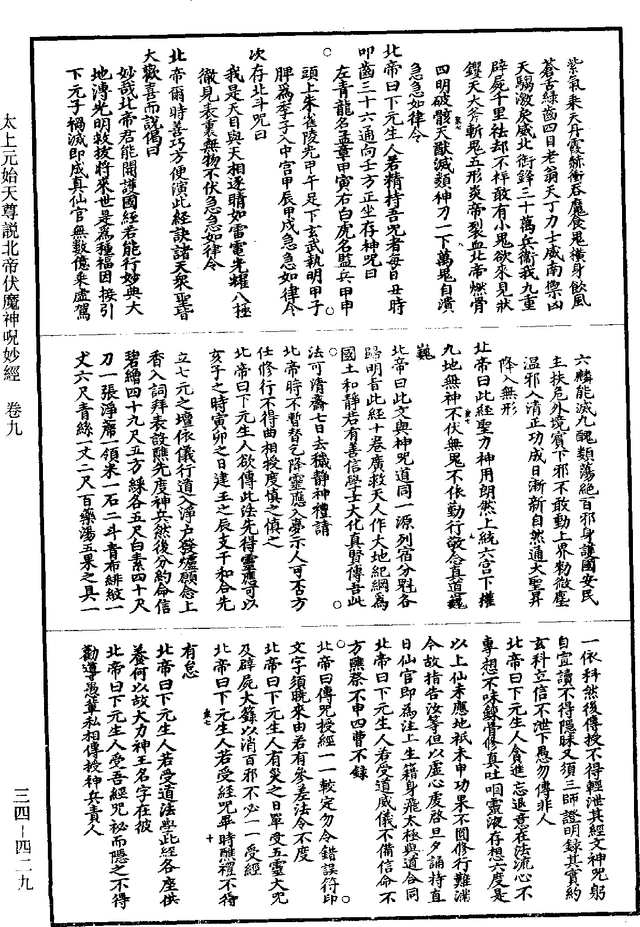 紫氣乘天丹霞赫衝吞魔食鬼橫身飲風
蒼舌綠齒四目老翁天丁力士威南禦凶
天騶激戾威北銜鋒三十萬兵衛我九重
辟屍千里袪却不祥敢有小鬼欲來見狀
钁天大斧斬鬼五形炎帝裂血北帝燃骨
四明破骸天猷滅類神刀一下萬鬼自潰
急急如律令
北帝曰下元生人若精持吾呪者每日丑時
叩齒三十六通向壬方正坐存神呪曰
左青龍名孟章甲寅右白虎名監兵甲申
頭上朱雀陵光甲午足下玄武執明甲子
脾爲李子入中宮甲辰甲戌急急如律令
次存北斗呪曰
我是天目與天相逐睛如雷電光耀八極
徹見表裏無物不伏急急如律令
北帝爾時善巧方便演此經訣諸天衆聖皆
大歡喜而說偈曰
妙哉北帝君能開護國經若能行妙典大
地溥光明救拔將來世是爲種福因接引
下元子禍滅即成真仙官無數億乘虛駕
六麟能滅九醜類蕩絕百邪身護國安民
主扶危外境賓下邪不敢動上界勑微塵
温邪入清正功成日漸新自然通大聖昇
降入無形
北帝曰此經聖力神用朗然上統六宮下攝
九地無神不伏無鬼不依勤行敬念真道巍
巍
北帝曰此文與神呪道同一源列宿分魁各
歸明旨此經十卷廣救天人作大地紀綱爲
國土和静若有善信學士大化真賢傳吾此
法可清齋七日去穢静神禮請
北帝時不暫替乞降靈應入夢示人可否方
仕修行不得曲相授度慎之慎之
北帝曰下元生人欲傳此法先得靈應可以
亥子之時寅卯之日建王之辰支干和合先
立七元之壇依儀行道入淨户發爐願念上
香入詞拜表設醮先度神兵然後分約命信
碧繒四十九尺五方綵各五尺白素四十尺
刀一張淨蓆一領米一石二斗青布緋紋一
丈六尺青絲一丈二尺百藥湯五果之具一
一依科然後傳授不得輕泄其經文神呪躬
自宜讀不得隱昧又須三師證明録其實約
玄科立信不泄下愚勿傳非人
北帝曰下元生人貪進忘退意在法流心不
專想不味鍊骨修真吐咽靈液存想六度是
以上仙未應地祇未申功果不圓修行難滿
今故指告汝等但以虛心虔啓旦夕誦持直
日仙官即爲注上生籍身飛太極與道合同
北帝曰下元生人若受道威儀不備信命不
方醮祭不申四曹不録
北帝曰傳呪授經一一較定勿令錯誤符印
文字須曉來由若有參差法令不度
北帝曰下元生人有災之日單受五靈大呪
及辟屍大籙以消百邪不必一一受經
北帝曰下元生人若受經呪畢時醮禮不得
有怠
北帝曰下元生人若受道法學此經各座供
養何以故大力神王名字在彼
北帝曰下元生人受吾經呪祕而隱之不得
勸導愚輩私相傳授神兵責人
太上元始天尊說北帝伏魔神呪妙經 卷九
三四—四二九